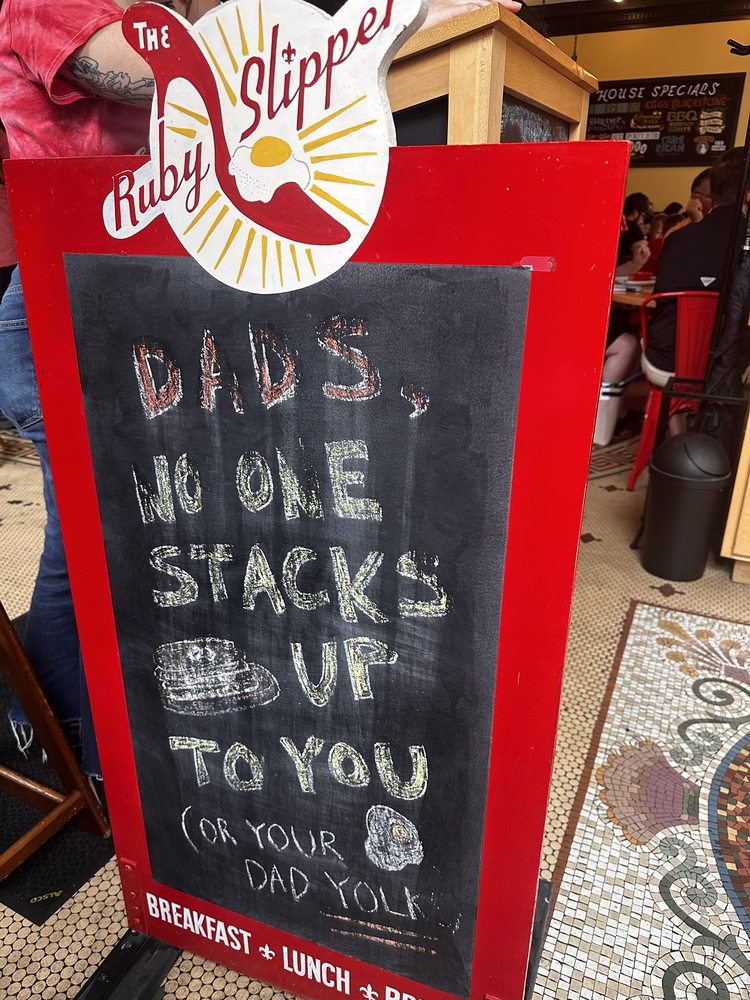 THE
Ruby Slipper
DADS,
NO ONE
STACKS
UP
TO YOU
(OR YOUR
DAD YOLK
BREAKFAST ⚜ LUNCH ⚜
HOUSE SPECIALS
EGGS BLACKSTONE
BBQ